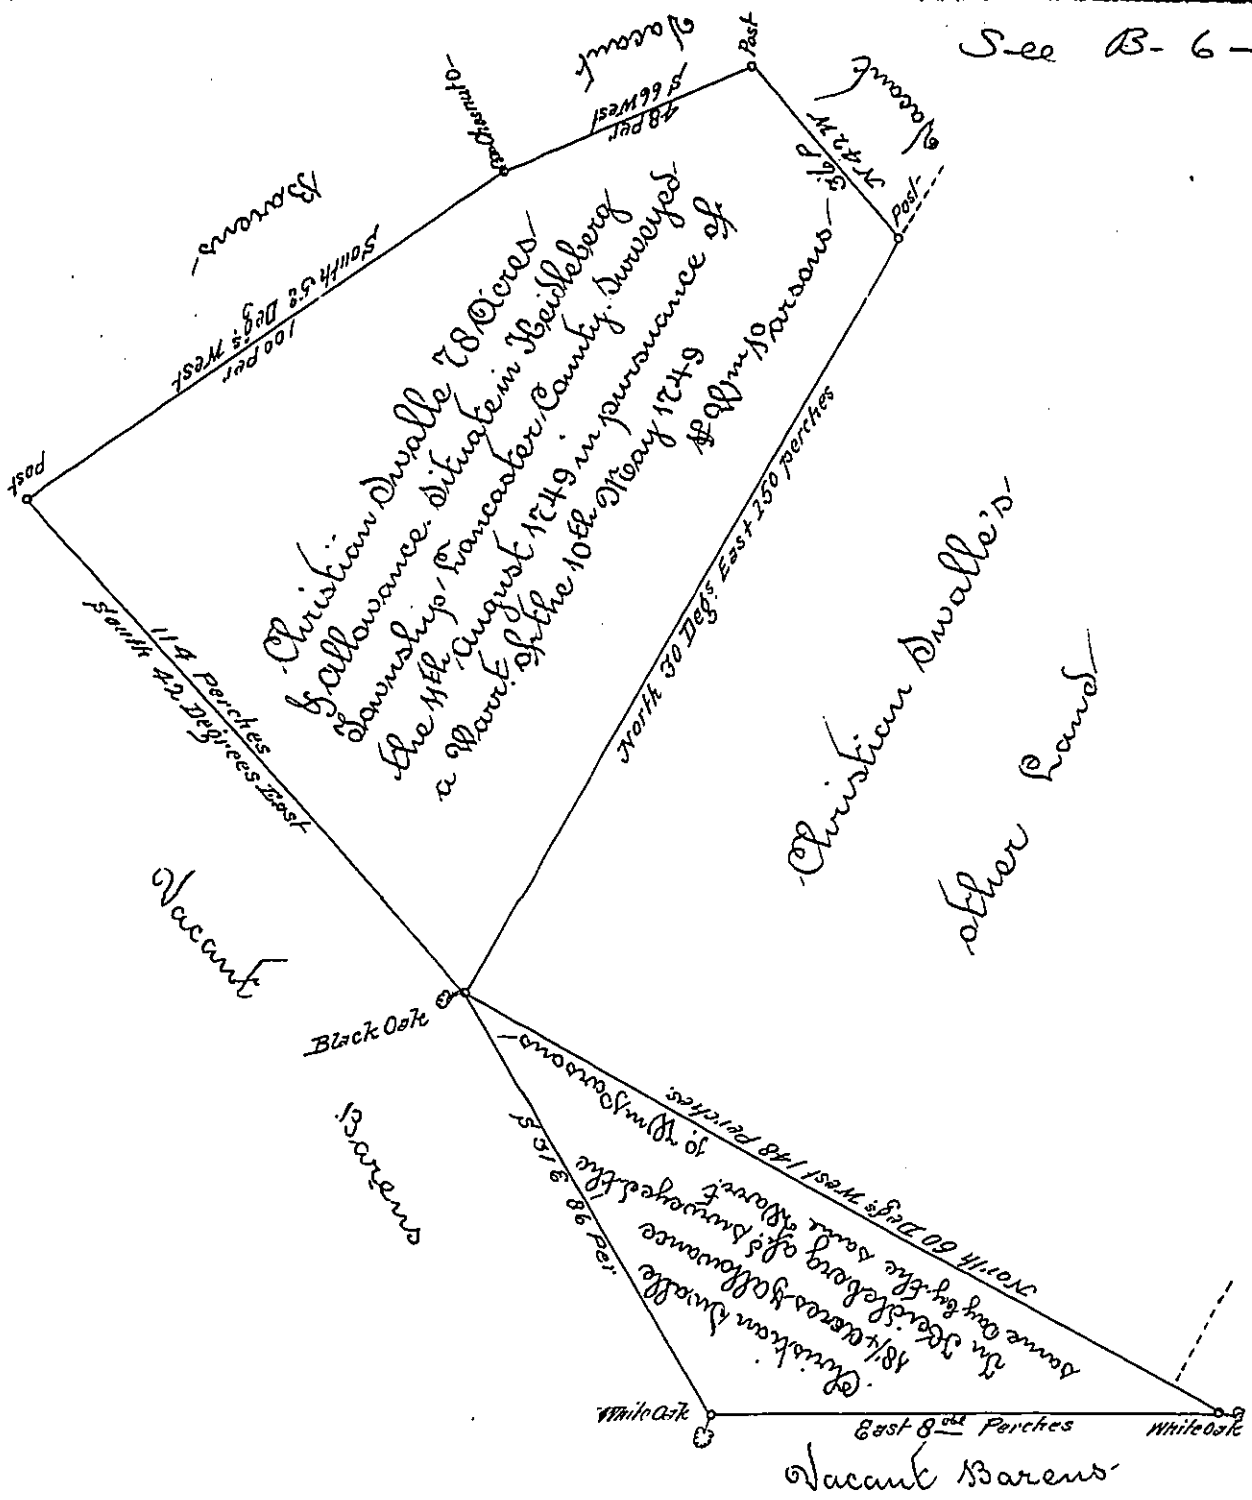 See B-6-
Vacant
Post
Chesnut o-
S 66 West
48 per
Vacant
N 42 W
36 P
Post-
Barens
South 52 Deg.s West
100 per
post
Christian Swalle 78 Acres
& allowance. Situate in Heidleberg
Township Lancaster County. Surveyed
the 11th August 1749 in pursuance of
a Warrt. of the 10th May 1749
p Wm Parsons
114 Perches
South 42 Degrees East
North 30 Degs. East 150 perches
Christian Swalle's
other Land
Vacant
Black Oak
Barens
S 31 E 86 Per.
North 60 Deg.s West 148 Perches.
Christian Swalle
18 1/4 Acres & allowance
In Heidleberg afs.d surveyed the
same day by the same Warr.t
p. Wm Parsons
White Oak
East 8 Perches
White Oak
Vacant Barens